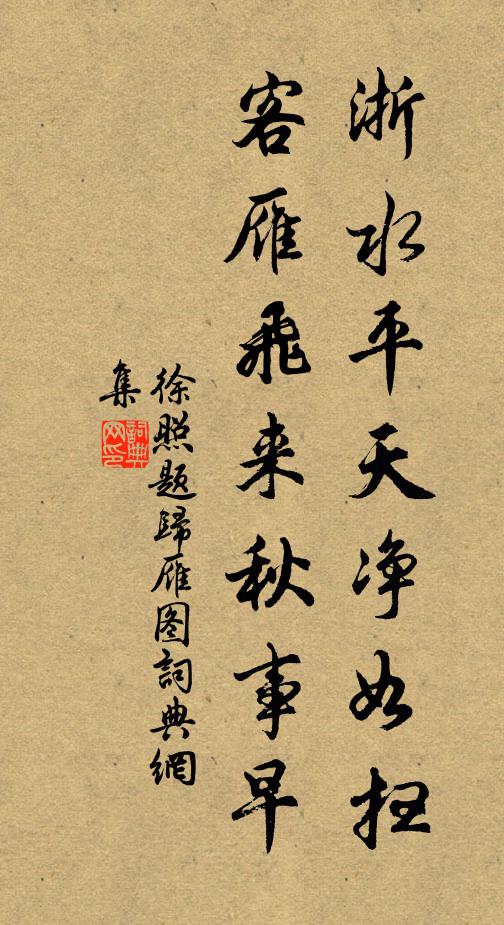 浙水平天净如扫
客雁飞来秋事早
徐照题歸雁图詞典網
集
詞典网印